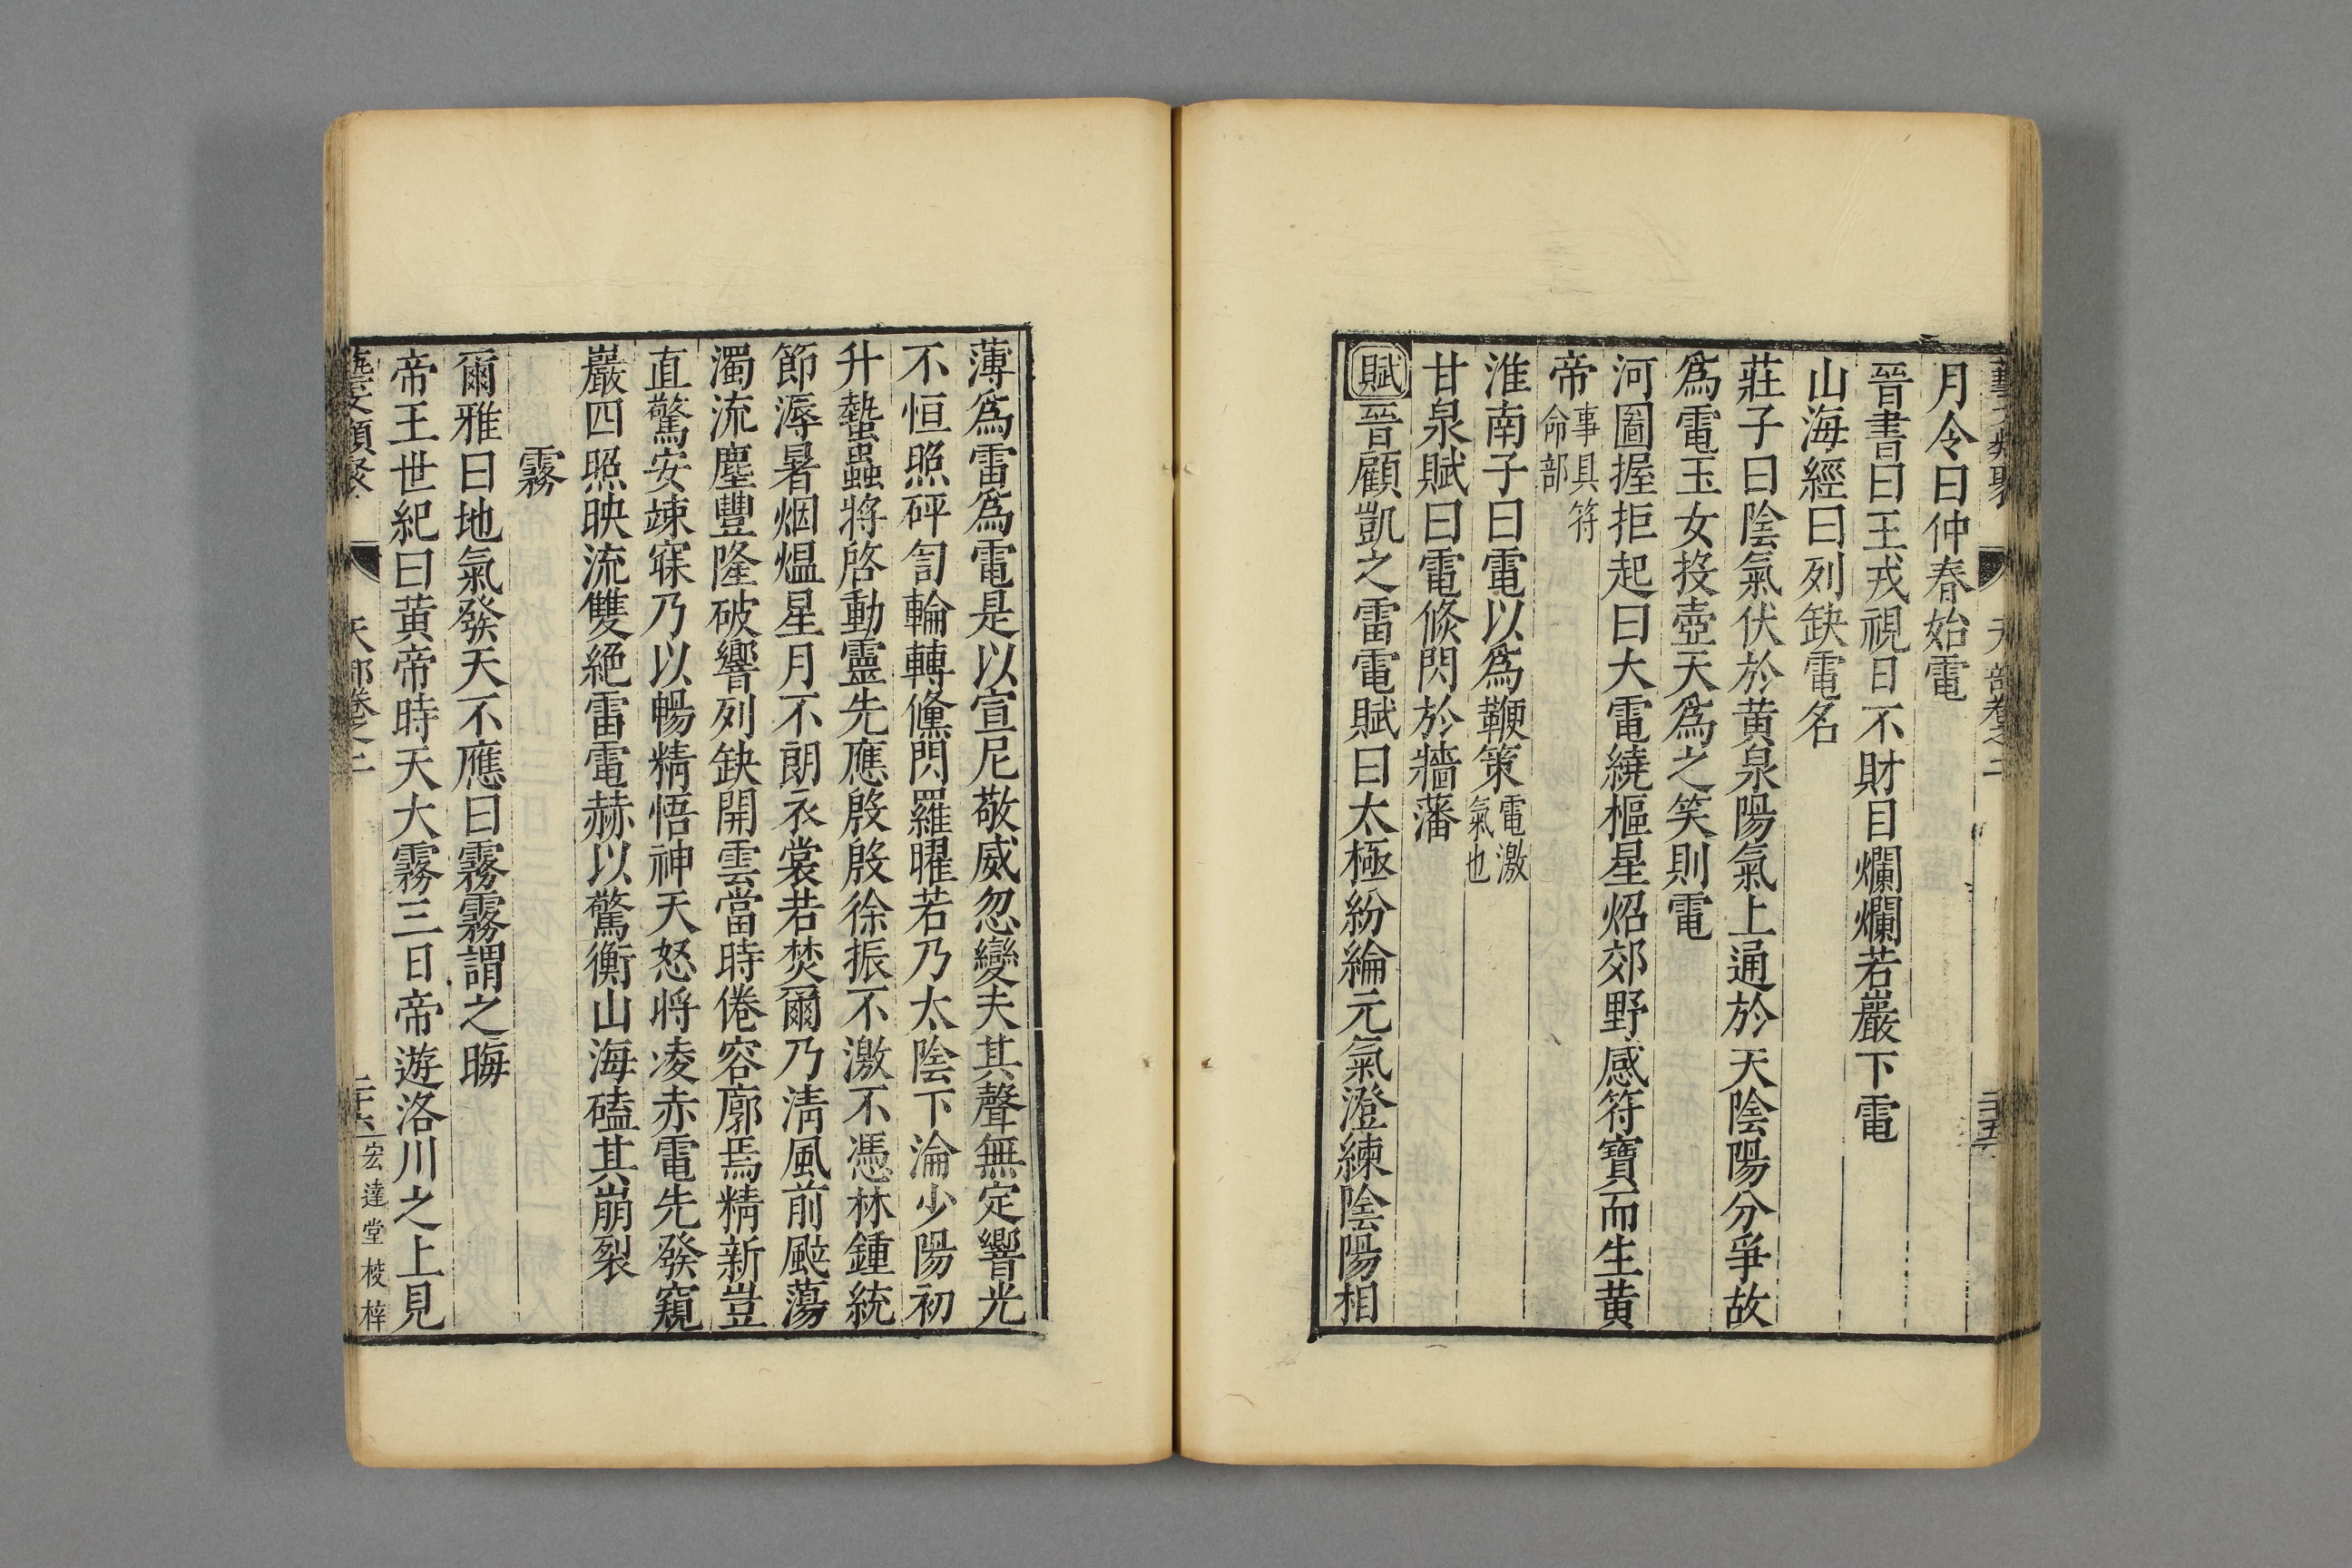 藝文類聚 天部卷之二 二十五
月令曰仲春始電
晉書曰王戎視日不財目爛爛若巖下電
山海經曰列缺電名
莊子曰陰氣伏於黄泉陽氣上通於天陰陽分爭故
爲電玉女投壺天爲之笑則電
河圖握拒起曰大電繞樞星炤郊野感符寶而生黄
帝事具符命部
淮南子曰電以爲鞭策電激氣也
甘泉賦曰電倐閃於牆藩
賦晉顧凱之雷電賦曰太極紛綸元氣澄練陰陽相
薄爲雷爲電是以宣尼敬威忽變夫其聲無定響光
不恒照砰訇輪轉儵閃羅曜若乃太陰下淪少陽初
升蟄蟲將啓動靈先應殷殷徐振不激不憑林鍾統
節溽暑烟熅星月不朗衣裳若焚爾乃清風前颰蕩
濁流塵豐隆破響列缺開雲當時倦容廓焉精新豈
直驚安竦寐乃以暢精悟神天怒將凌赤電先發窺
巖四照映流雙絕雷電赫以驚衡山海磕其崩裂
霧
爾雅曰地氣發天不應曰霧霧謂之晦
帝王世紀曰黄帝時天大霧三日帝遊洛川之上見
藝文類聚 天部卷之二 二十六 宏達堂校梓